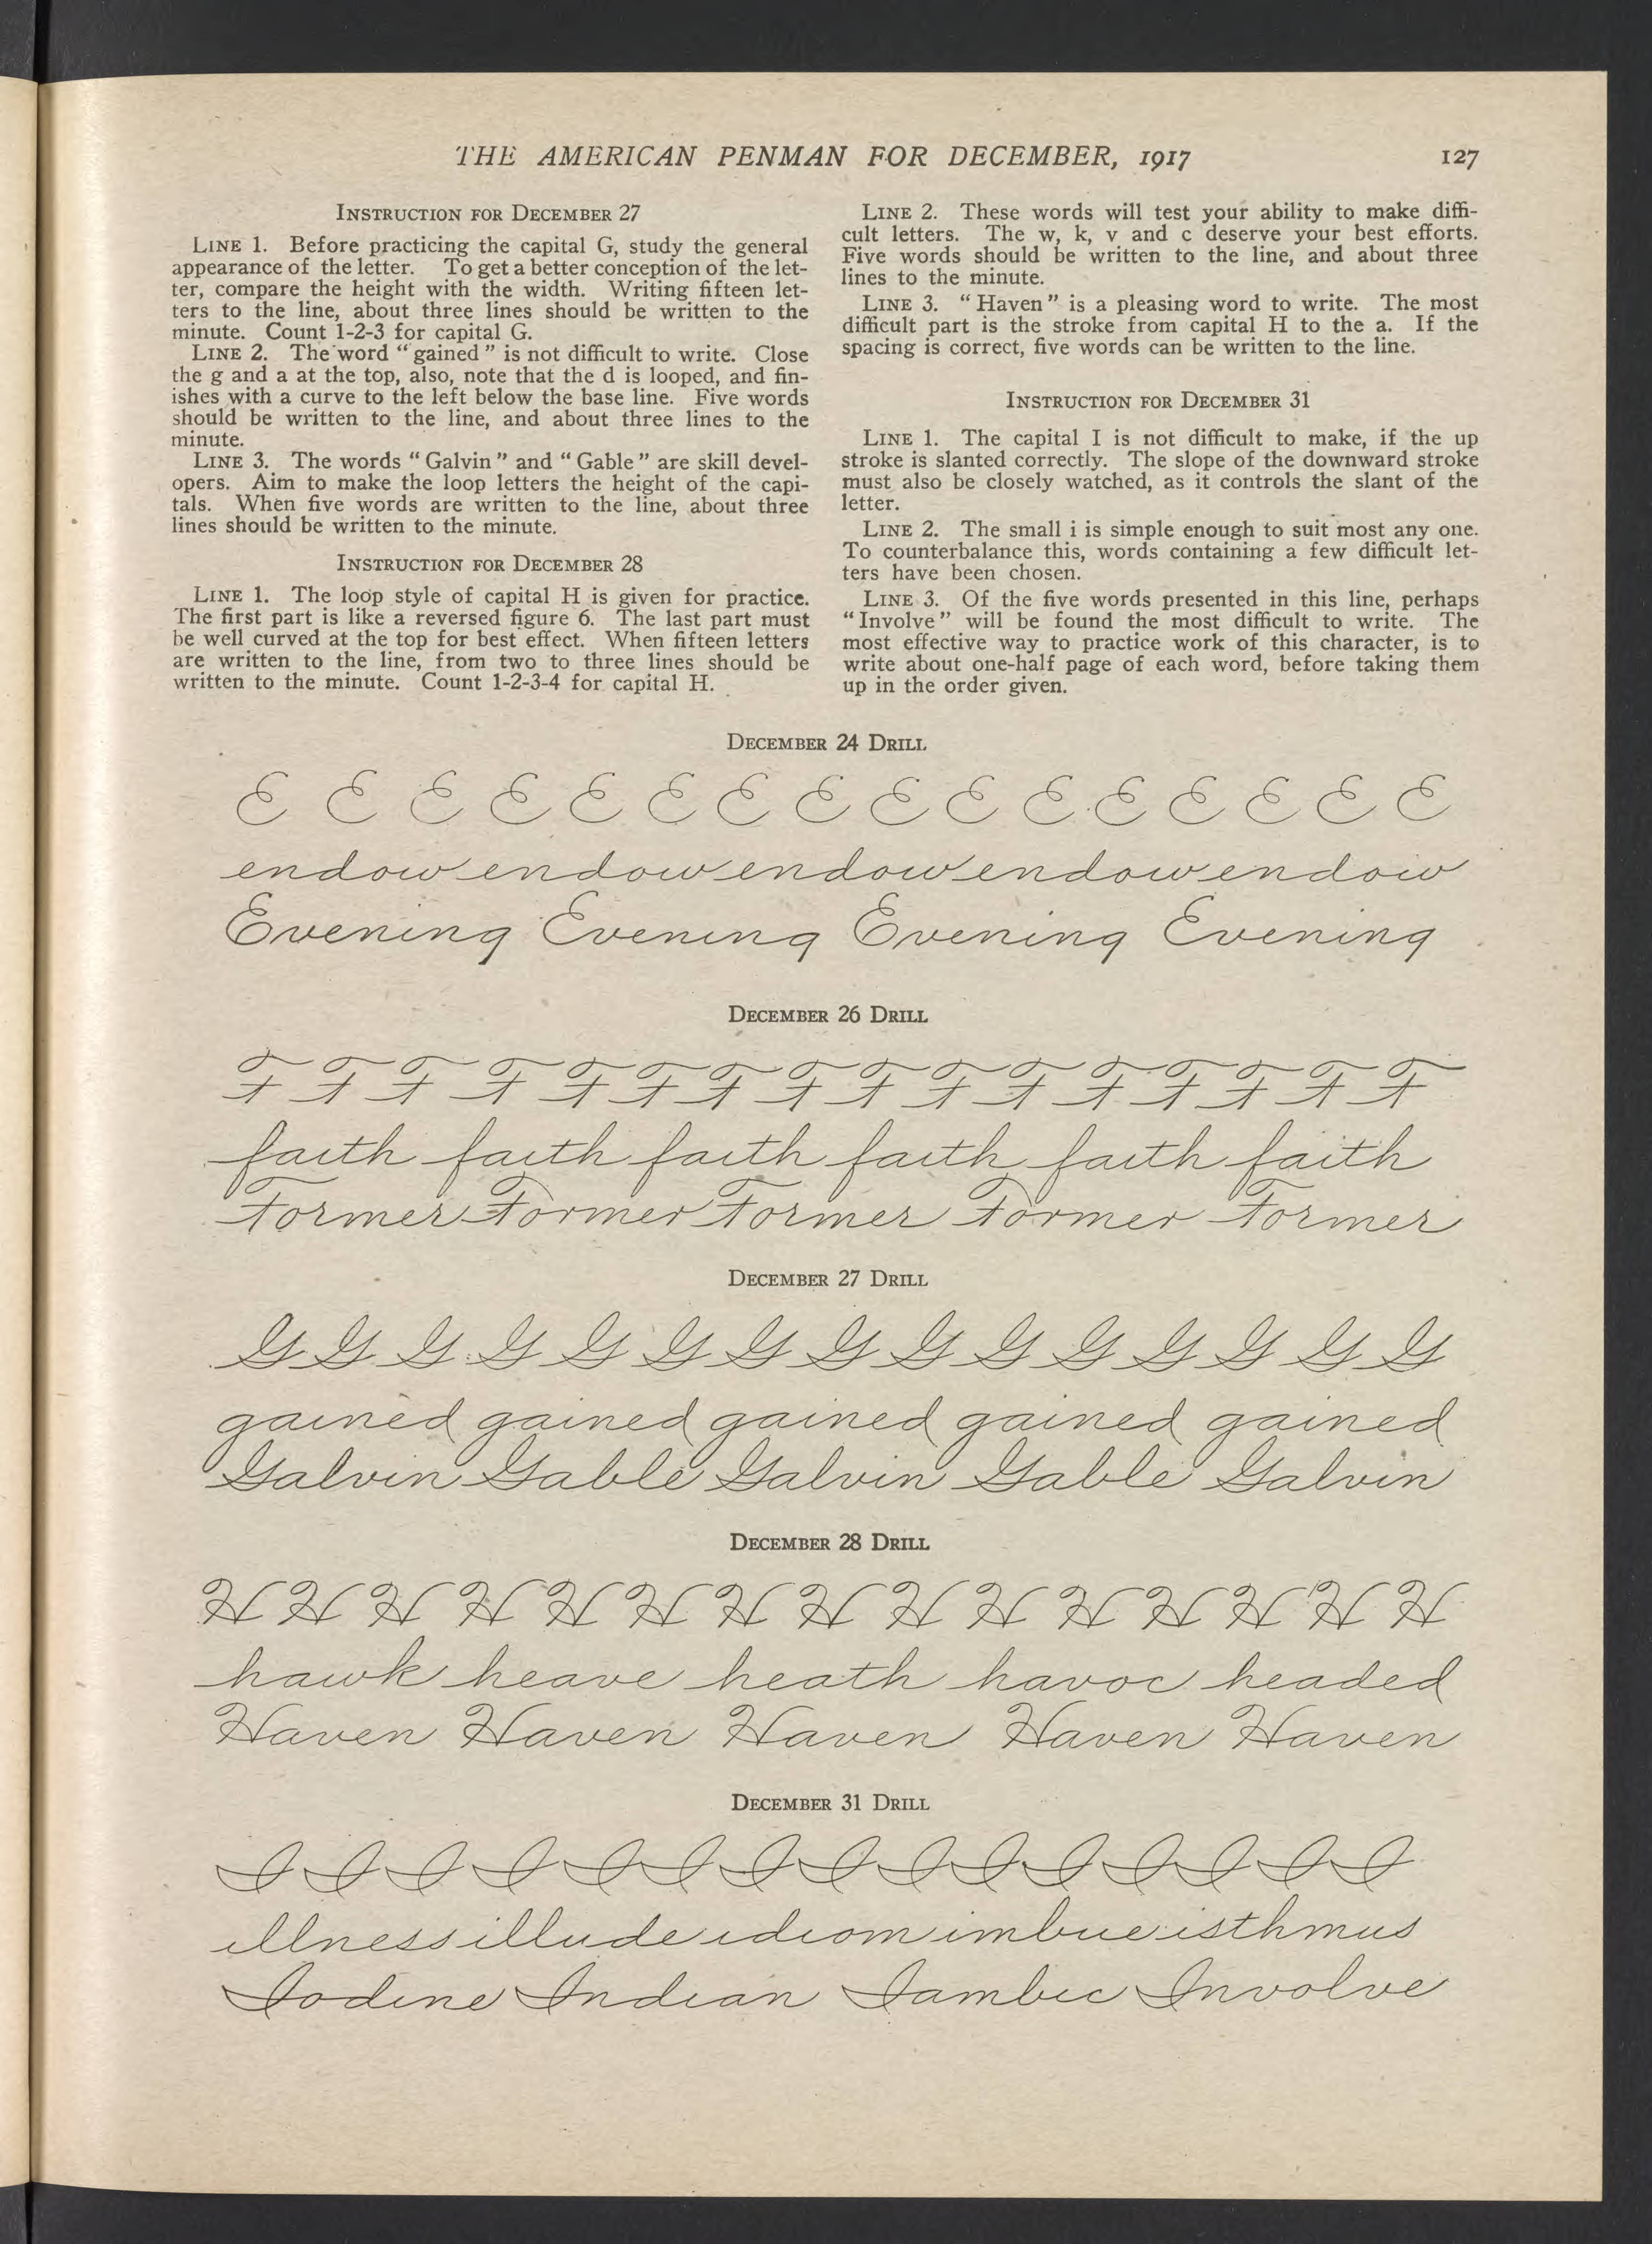 THE AMERICAN PENMAN FOR DECEMBER, 1917 127
INSTRUCTION FOR DECEMBER 27
LINE 1. Before practicing the capital G, study the general
appearance of the letter. To get a better conception of the let-
ter, compare the height with the width. Writing fifteen let-
ters to the line, about three lines should be written to the
minute. Count 1-2-3 for capital G.
LINE 2. The word “gained” is not difficult to write. Close
the g and a at the top, also, note that the d is looped, and fin-
ishes with a curve to the left below the base line. Five words
should be written to the line, and about three lines to the
minute.
LINE 3. The words “Galvin” and “Gable” are skill devel-
opers. Aim to make the loop letters the height of the capi-
tals. When five words are written to the line, about three
lines should be written to the minute.
INSTRUCTION FOR DECEMBER 28
LINE 1. The loop style of capital H is given for practice.
The first part is like a reversed figure 6. The last part must
be well curved at the top for best effect. When fifteen letters
are written to the line, from two to three lines should be
written to the minute. Count 1-2-3-4 for capital H.
LINE 2. These words will test your ability to make diffi-
cult letters. The w, k, v and c deserve your best efforts.
Five words should be written to the line, and about three
lines to the minute.
LINE 3. “Haven” is a pleasing word to write. The most
difficult part is the stroke from capital H to the a. If the
spacing is correct, five words can be written to the line.
INSTRUCTION FOR DECEMBER 31
LINE 1. The capital I is not difficult to make, if the up
stroke is slanted correctly. The slope of the downward stroke
must also be closely watched, as it controls the slant of the
letter.
LINE 2. The small i is simple enough to suit most any one.
To counterbalance this, words containing a few difficult let-
ters have been chosen.
LINE 3. Of the five words presented in this line, perhaps
“Involve” will be found the most difficult to write. The
most effective way to practice work of this character, is to
write about one-half page of each word, before taking them
up in the order given.
DECEMBER 24 DRILL
E E E E E E E E E E E E E E E E
endow endow endow endow endow
Evening Evening Evening Evening
DECEMBER 26 DRILL
F F F F F F F F F F F F F F F F
faith faith faith faith faith faith
Former Former Former Former Former
DECEMBER 27 DRILL
G G G G G G G G G G G G G G G
gained gained gained gained gained
Galvin Gable Galvin Gable Galvin
DECEMBER 28 DRILL
H H H H H H H H H H H H H H H
hawk heave heath havoc headed
Haven Haven Haven Haven Haven
DECEMBER 31 DRILL
I I I I I I I I I I I I I I I
illness illude idiom imbue isthmus
Iodine Indian Iambic Involve